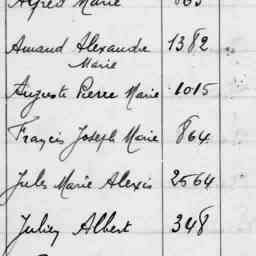 Alfred Marie 863
Amand Alexandre 1382
Marie
Auguste Pierre Marie 1015
Francis Joseph Marie 864
Jules Marie Alexis 2564
Julien Albert 348